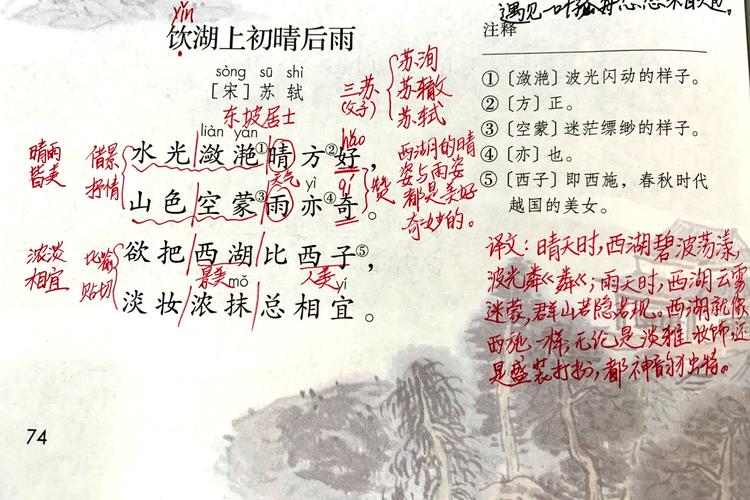 yǐn
饮湖上初晴后雨
sòng sū shì
[宋]苏 轼
东坡居士
三苏
(父子)
苏洵
苏辙
苏轼
liàn yàn
水光潋滟①晴方②好，
hǎo
天气
yì
qí
山色空蒙③雨亦④奇。
晴雨
皆美
借景
抒情
赞
西湖的晴
姿与雨姿
都是美好
奇妙的。
欲把西湖比西子⑤，
景美
人美
mǒ
yí
淡妆浓抹总相宜。
浓淡
相宜
比喻
贴切
74
遇见一叶
注释
①〔潋滟〕波光闪动的样子。
②〔方〕正。
③〔空蒙〕迷茫缥缈的样子。
④〔亦〕也。
⑤〔西子〕即西施，春秋时代
越国的美女。
译文：晴天时，西湖碧波荡漾，
波光粼粼；雨天时，西湖云雾
迷蒙，群山若隐若现。西湖就像
西施一样，无论是淡雅妆饰，还
是盛装打扮，都神韵独特。